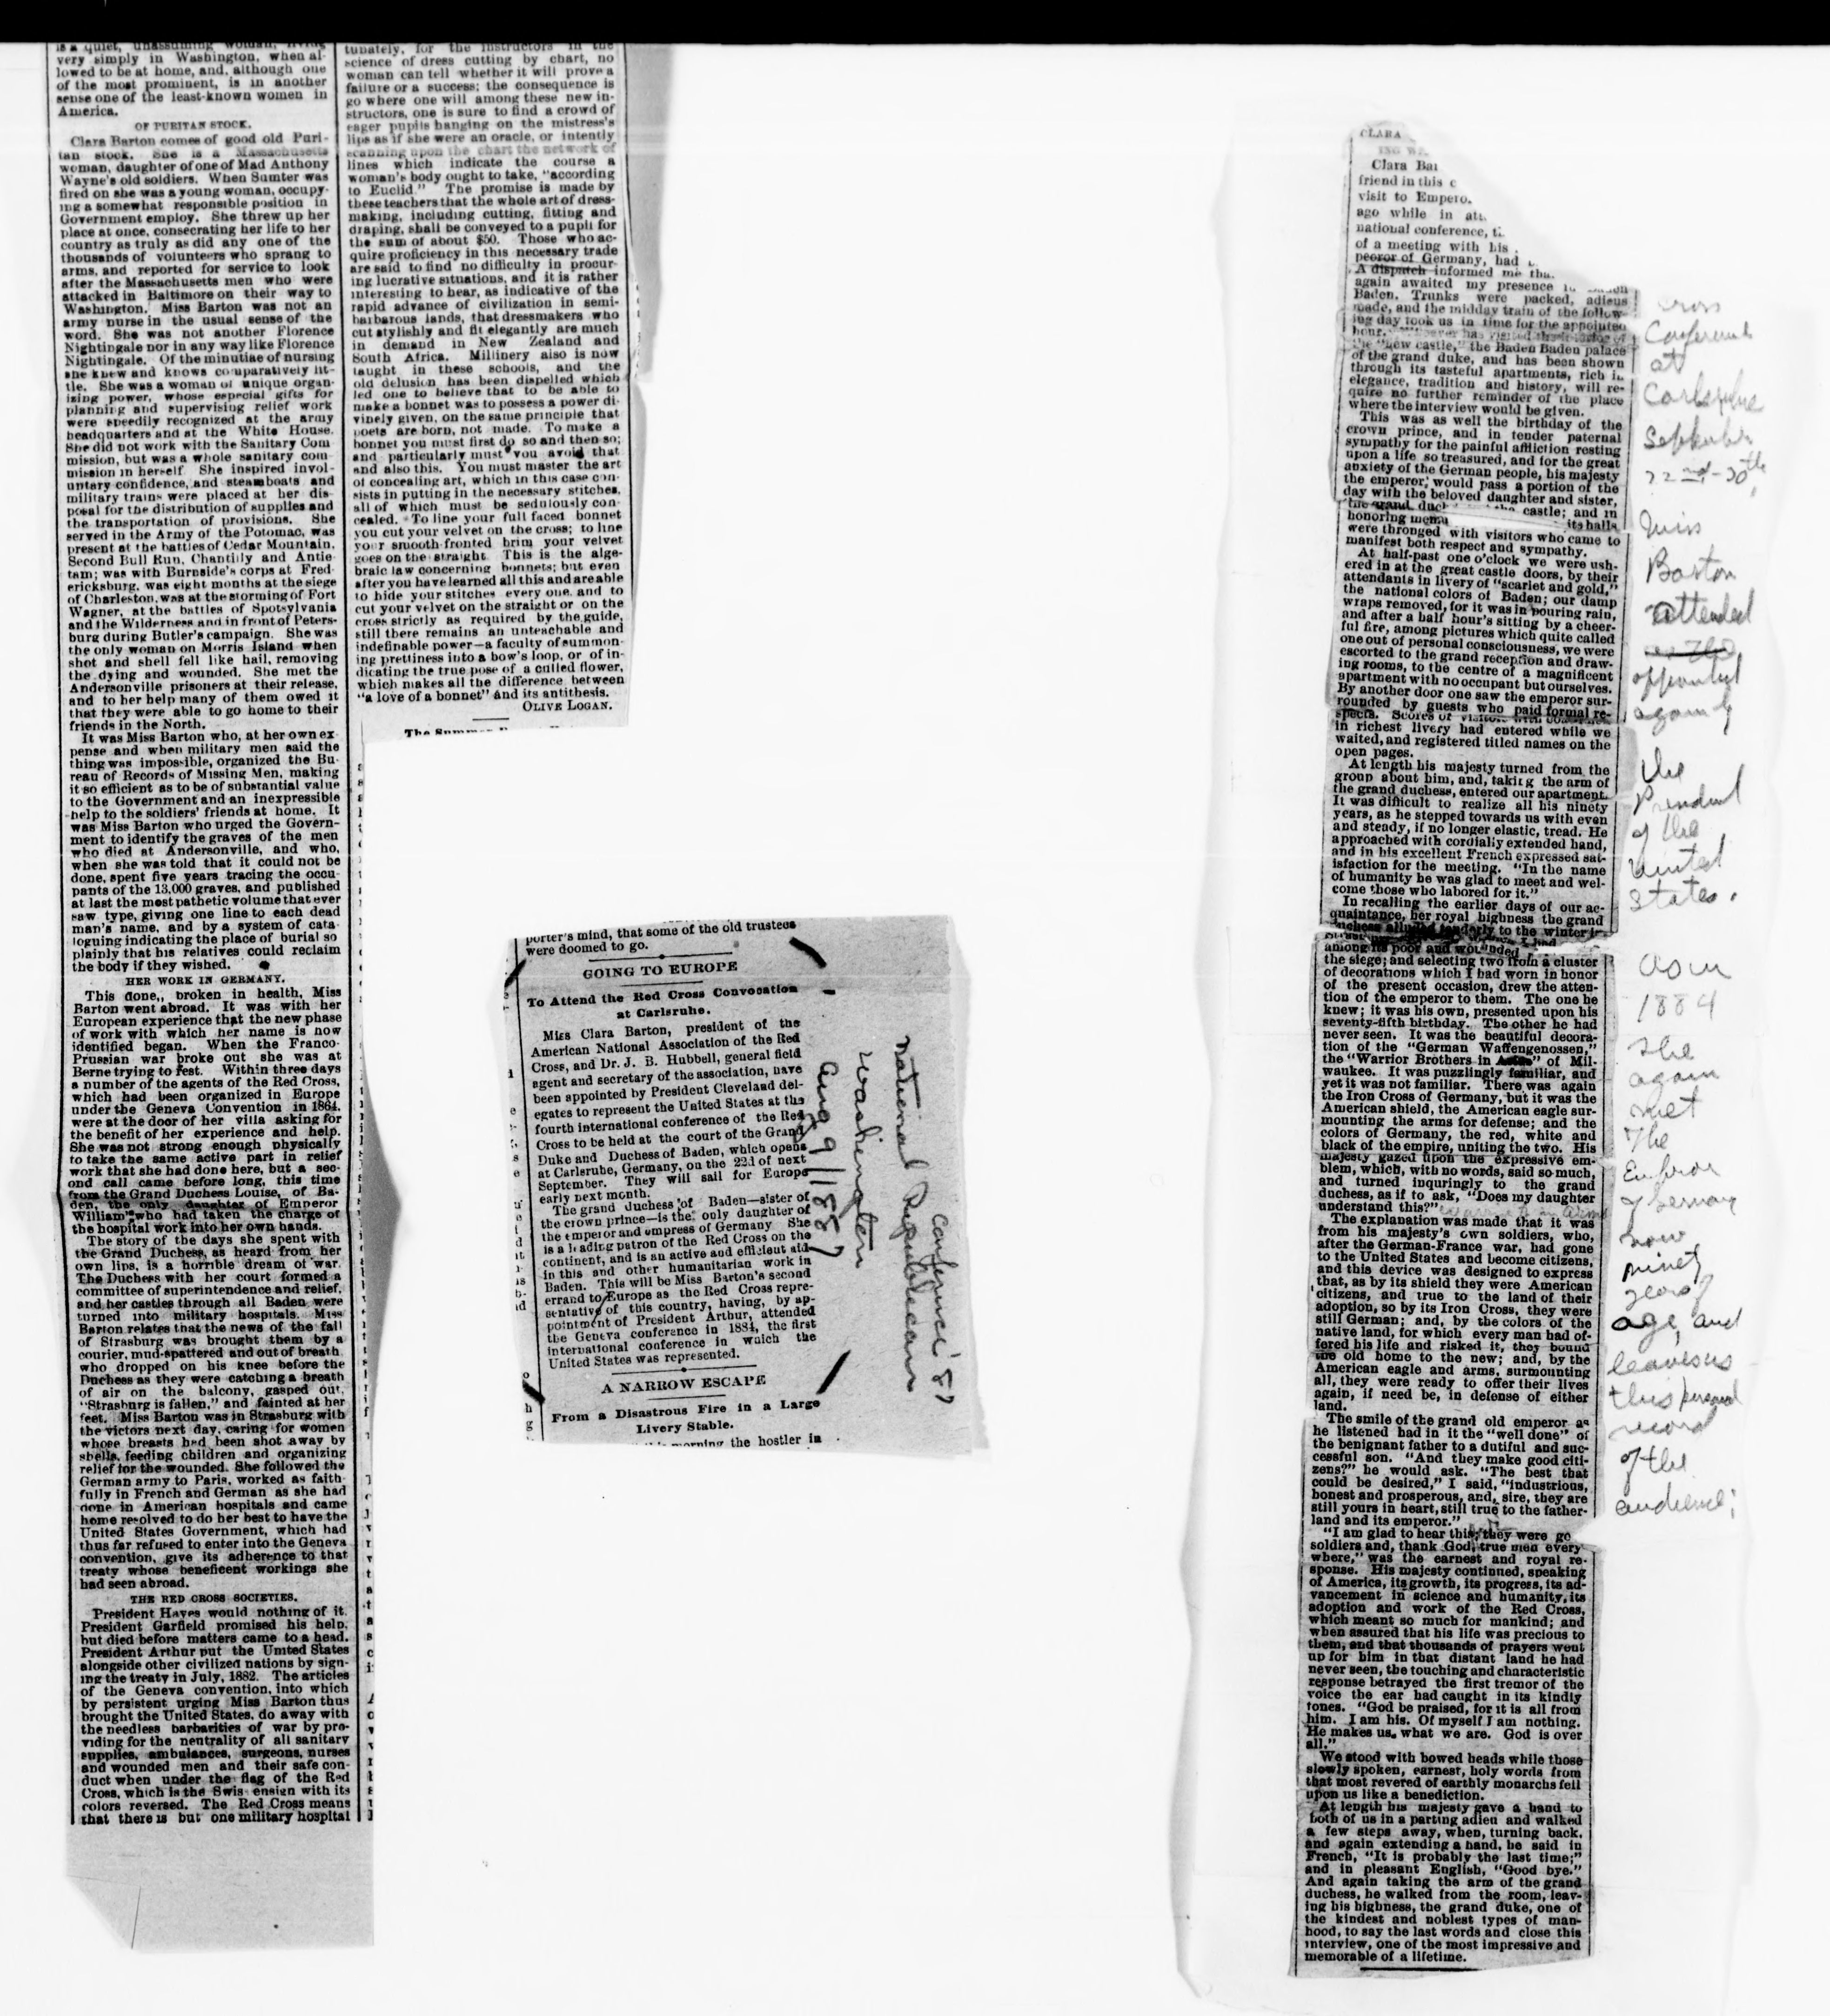 is a quiet, unassuming woman, living
very simply in Washington, when al-
lowed to be at home, and, although one
of the most prominent, is in another
sense one of the least-known women in
America.
OF PURITAN STOCK.
Clara Barton comes of good old Puri-
tan stock. She is a Massachusetts
woman, daughter of one of Mad Anthony
Wayne's old soldiers. When Sumter was
fired on she was a young woman, occupy-
ing a somewhat responsible position in
Government employ. She threw up her
place at once, consecrating her life to her
country as truly as did any one of the
thousands of volunteers who sprang to
arms, and reported for service to look
after the Massachusetts men who were
attacked in Baltimore on their way to
Washington. Miss Barton was not an
army nurse in the usual sense of the
word. She was not another Florence
Nightingale nor in any way like Florence
Nightingale. Of the minutiae of nursing
she knew and knows comparatively lit-
tle. She was a woman of unique organ-
izing power, whose especial gifts for
planning and supervising relief work
were speedily recognized at the army
headquarters and at the White House.
She did not work with the Sanitary Com
mission, but was a whole sanitary com
mission in herself. She inspired invol-
untary confidence, and steamboats and
military trains were placed at her dis-
posal for the distribution of supplies and
the transportation of provisions. She
served in the Army of the Potomac, was
present at the battles of Cedar Mountain,
Second Bull Run, Chantilly and Antie-
tam; was with Burnside's corps at Fred-
ericksburg, was eight months at the siege
of Charleston, was at the storming of Fort
Wagner, at the battles of Spotsylvania
and the Wilderness and in front of Peters-
burg during Butler's campaign. She was
the only woman on Morris Island when
shot and shell fell like hail, removing
the dying and wounded. She met the
Andersonville prisoners at their release,
and to her help many of them owed it
that they were able to go home to their
friends in the North.
It was Miss Barton who, at her own ex-
pense and when military men said the
thing was impossible, organized the Bu-
reau of Records of Missing Men, making
it so efficient as to be of substantial value
to the Government and an inexpressible
help to the soldiers' friends at home. It
was Miss Barton who urged the Govern-
ment to identify the graves of the men
who died at Andersonville, and who,
when she was told that it could not be
done, spent five years tracing the occu-
pants of the 13,000 graves, and published
at last the most pathetic volume that ever
saw type, giving one line to each dead
man's name, and by a system of cata-
loguing indicating the place of burial so
plainly that his relatives could reclaim
the body if they wished.
HER WORK IN GERMANY.
This done,, broken in health, Miss
Barton went abroad. It was with her
European experience that the new phase
of work with which her name is now
identified began. When the Franco-
Prussian war broke out she was at
Berne trying to rest. Within three days
a number of the agents of the Red Cross,
which had been organized in Europe
under the Geneva Convention in 1864,
were at the door of her villa asking for
the benefit of her experience and help.
She was not strong enough physically
to take the same active part in relief
work that she had done here, but a sec-
ond call came before long, this time
from the Grand Duchess Louise, of Ba-
den, the only daughter of Emperor
William, who had taken the charge of
the hospital work into her own hands.
The story of the days she spent with
the Grand Duchess, as heard from her
own lips, is a horrible dream of war.
The Duchess with her court formed a
committee of superintendence and relief,
and her castles through all Baden were
turned into military hospitals. Miss
Barton relates that the news of the fall
of Strasburg was brought them by a
courier, mud-spattered and out of breath
who dropped on his knee before the
Duchess as they were catching a breath
of air on the balcony, gasped out,
"Strasburg is fallen," and fainted at her
feet. Miss Barton was in Strasburg with
the victors next day, caring for women
whose breasts had been shot away by
shells, feeding children and organizing
relief for the wounded. She followed the
German army to Paris, worked as faith-
fully in French and German as she had
done in American hospitals and came
home resolved to do her best to have the
United States Government, which had
thus far refused to enter into the Geneva
convention, give its adherence to that
treaty whose beneficent workings she
had seen abroad.
THE RED CROSS SOCIETIES.
President Hayes would nothing of it.
President Garfield promised his help,
but died before matters came to a head.
President Arthur put the United States
alongside other civilized nations by sign-
ing the treaty in July, 1882. The articles
of the Geneva convention, into which
by persistent urging Miss Barton thus
brought the United States, do away with
the needless barbarities of war by pro-
viding for the neutrality of all sanitary
supplies, ambulances, surgeons, nurses
and wounded men and their safe con-
duct when under the flag of the Red
Cross, which is the Swis ensign with its
colors reversed. The Red Cross means
that there is but one military hospital
tunately, for the instructors in the
science of dress cutting by chart, no
woman can tell whether it will prove a
failure or a success; the consequence is
go where one will among these new in-
structors, one is sure to find a crowd of
eager pupils hanging on the mistress's
lips as if she were an oracle, or intently
scanning upon the chart the network of
lines which indicate the course a
woman's body ought to take, "according
to Euclid." The promise is made by
these teachers that the whole art of dress-
making, including cutting, fitting and
draping, shall be conveyed to a pupil for
the sum of about $50. Those who ac-
quire proficiency in this necessary trade
are said to find no difficulty in procur-
ing lucrative situations, and it is rather
interesting to hear, as indicative of the
rapid advance of civilization in semi-
barbarous lands, that dressmakers who
cut stylishly and fit elegantly are much
in demand in New Zealand and
South Africa. Millinery also is now
taught in these schools, and the
old delusion has been dispelled which
led one to believe that to be able to
make a bonnet was to possess a power di-
vinely given, on the same principle that
poets are born, not made. To make a
bonnet you must first do so and then so;
and particularly must you avoid that
and also this. You must master the art
of concealing art, which in this case con-
sists in putting in the necessary stitches,
all of which must be sedulously con
cealed. To line your full faced bonnet
you cut your velvet on the cross; to line
your smooth-fronted brim your velvet
goes on the straight. This is the alge-
braic law concerning bonnets; but even
after you have learned all this and are able
to hide your stitches every one, and to
cut your velvet on the straight or on the
cross strictly as required by the guide,
still there remains an unteachable and
indefinable power—a faculty of summon-
ing prettiness into a bow's loop, or of in-
dicating the true pose of a culled flower,
which makes all the difference between
"a love of a bonnet" and its antithesis.
OLIVE LOGAN.
The
porter's mind, that some of the old trustees
were doomed to go.
GOING TO EUROPE
To Attend the Red Cross Convocation
at Carlsruhe.
Miss Clara Barton, president of the
American National Association of the Red
Cross, and Dr. J. B. Hubbell, general field
agent and secretary of the association, have
been appointed by President Cleveland del-
egates to represent the United States at the
fourth international conference of the Red
Cross to be held at the court of the Grand
Duke and Duchess of Baden, which opens
at Carlsruhe, Germany, on the 22d of next
September. They will sail for Europe
early next month.
The grand duchess of Baden—sister of
the crown prince—is the only daughter of
the emperor and empress of Germany She
is a leading patron of the Red Cross on the
continent, and is an active and efficient aid
in this and other humanitarian work in
Baden. This will be Miss Barton's second
errand to Europe as the Red Cross repre-
sentative of this country, having, by ap-
pointment of President Arthur, attended
the Geneva conference in 1884, the first
international conference in which the
United States was represented.
A NARROW ESCAPE
From a Disastrous Fire in a Large
Livery Stable.
morning the hostler in
National Republican
Washington
Aug 9 1887
Conference '87
CLARA
Clara Bar
friend in this c
visit to Empero
ago while in att
national conference, t
of a meeting with his
peror of Germany, had
A dispatch informed me tha
again awaited my presence
Baden. Trunks were packed, adieus
made, and the midday train of the follow-
ing day took us in time for the appointed
hour. Whoever has visited
the "new castle," the Baden Baden palace
of the grand duke, and has been shown
through its tasteful apartments, rich in
elegance, tradition and history, will re-
quire no further reminder of the place
where the interview would be given.
This was as well the birthday of the
crown prince, and in tender paternal
sympathy for the painful affliction resting
upon a life so treasured, and for the great
anxiety of the German people, his majesty
the emperor, would pass a portion of the
day with the beloved daughter and sister,
the grand duc castle; and in
honoring its halls
were thronged with visitors who came to
manifest both respect and sympathy.
At half-past one o'clock we were ush-
ered in at the great castle doors, by their
attendants in livery of "scarlet and gold,"
the national colors of Baden; our damp
wraps removed, for it was in pouring rain,
and after a half hour's sitting by a cheer-
ful fire, among pictures which quite called
one out of personal consciousness, we were
escorted to the grand reception and draw-
ing rooms, to the centre of a magnificent
apartment with no occupant but ourselves.
By another door one saw the emperor sur-
rounded by guests who paid formal re-
spects. Scores of
in richest livery had entered while we
waited, and registered titled names on the
open pages.
At length his majesty turned from the
group about him, and, taking the arm of
the grand duchess, entered our apartment.
It was difficult to realize all his ninety
years, as he stepped towards us with even
and steady, if no longer elastic, tread. He
approached with cordially extended hand,
and in his excellent French expressed sat-
isfaction for the meeting. "In the name
of humanity he was glad to meet and wel-
come those who labored for it."
In recalling the earlier days of our ac-
quaintance, her royal highness the grand
duchess alluded tenderly to the winter in
I had
among its poor and wounded
the siege; and selecting two from a cluster
of decorations which I had worn in honor
of the present occasion, drew the atten-
tion of the emperor to them. The one he
knew; it was his own, presented upon his
seventy-fifth birthday. The other he had
never seen. It was the beautiful decora-
tion of the "German Waffengenossen,"
the "Warrior Brothers in Arms" of Mil-
waukee. It was puzzlingly familiar, and
yet it was not familiar. There was again
the Iron Cross of Germany, but it was the
American shield, the American eagle sur-
mounting the arms for defense; and the
colors of Germany, the red, white and
black of the empire, uniting the two. His
majesty gazed upon the expressive em-
blem, which, with no words, said so much,
and turned inquiringly to the grand
duchess, as if to ask, "Does my daughter
understand this?"
The explanation was made that it was
from his majesty's own soldiers, who,
after the German-France war, had gone
to the United States and become citizens,
and this device was designed to express
that, as by its shield they were American
citizens, and true to the land of their
adoption, so by its Iron Cross, they were
still German; and, by the colors of the
native land, for which every man had of-
fered his life and risked it, they bound
the old home to the new; and, by the
American eagle and arms, surmounting
all, they were ready to offer their lives
again, if need be, in defense of either
land.
The smile of the grand old emperor as
he listened had in it the "well done" of
the benignant father to a dutiful and suc-
cessful son. "And they make good citi-
zens?" he would ask. "The best that
could be desired," I said, "industrious,
honest and prosperous, and, sire, they are
still yours in heart, still true to the father-
land and its emperor."
"I am glad to hear this; they were go
soldiers and, thank God, true men every
where," was the earnest and royal re-
sponse. His majesty continued, speaking
of America, its growth, its progress, its ad-
vancement in science and humanity, its
adoption and work of the Red Cross,
which meant so much for mankind; and
when assured that his life was precious to
them, and that thousands of prayers went
up for him in that distant land he had
never seen, the touching and characteristic
response betrayed the first tremor of the
voice the ear had caught in its kindly
tones. "God be praised, for it is all from
him. I am his. Of myself I am nothing.
He makes us what we are. God is over
all."
We stood with bowed heads while those
slowly spoken, earnest, holy words from
that most revered of earthly monarchs fell
upon us like a benediction.
At length his majesty gave a hand to
both of us in a parting adieu and walked
a few steps away, when, turning back,
and again extending a hand, he said in
French, "It is probably the last time;"
and in pleasant English, "Good bye."
And again taking the arm of the grand
duchess, he walked from the room, leav-
ing his highness, the grand duke, one of
the kindest and noblest types of man-
hood, to say the last words and close this
interview, one of the most impressive and
memorable of a lifetime.
Cross
Conference
at
Carlsruhe
September
22nd-30th,
Miss
Barton
attended
appointed
again by
the
President
of the
United
States.
as in
1884
She
again
met
the
Emperor
of Germany
now
ninety
years of
age, and
leaves us
this personal
record
of the
audience;